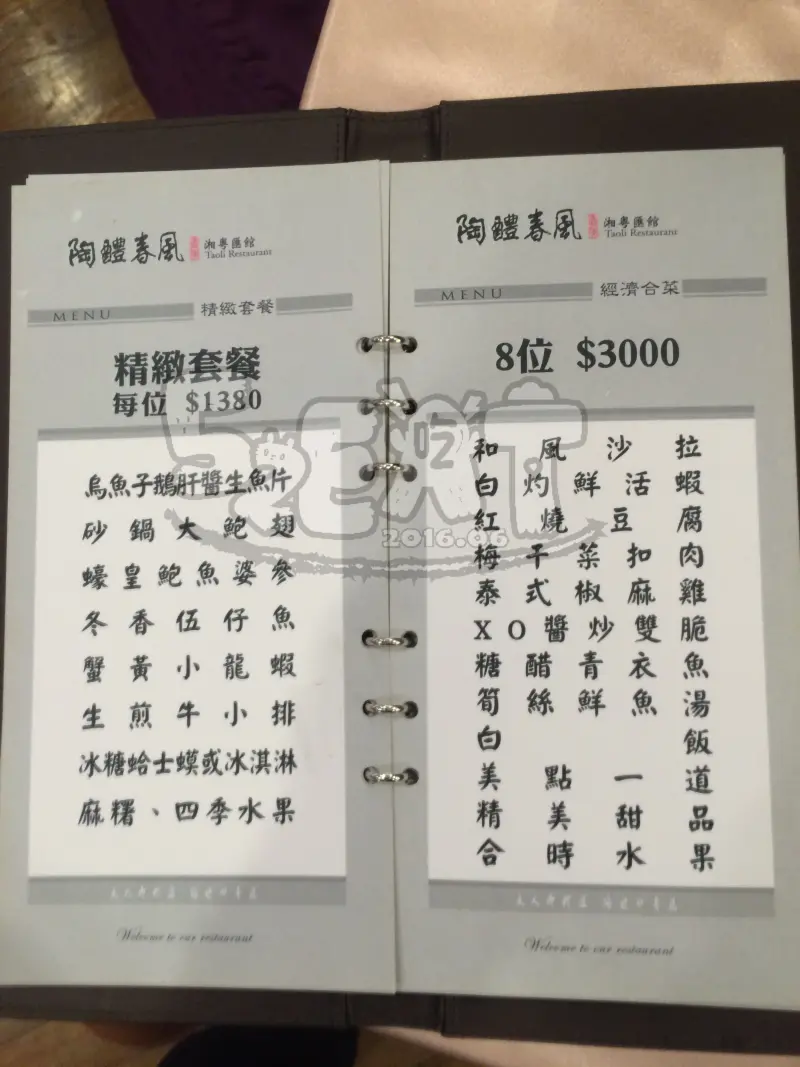 陶醴春風 湘粵匯館
Taoli Restaurant
MENU 精緻套餐
精緻套餐
每位 $1380
烏魚子鵝肝醬生魚片
砂鍋大鮑翅
蠔皇鮑魚婆參
冬香伍仔魚
蟹黃小龍蝦
生煎牛小排
冰糖蛤士蟆或冰淇淋
麻糬、四季水果
Welcome to our restaurant
陶醴春風 湘粵匯館
Taoli Restaurant
MENU 經濟合菜
8位 $3000
和風沙拉
白灼鮮活蝦
紅燒豆腐
梅干菜扣肉
泰式椒麻雞
XO醬炒雙脆
糖醋青衣魚
筍絲鮮魚湯
白飯
美點一道
精美甜品
合時水果
Welcome to our restaurant
2016.06